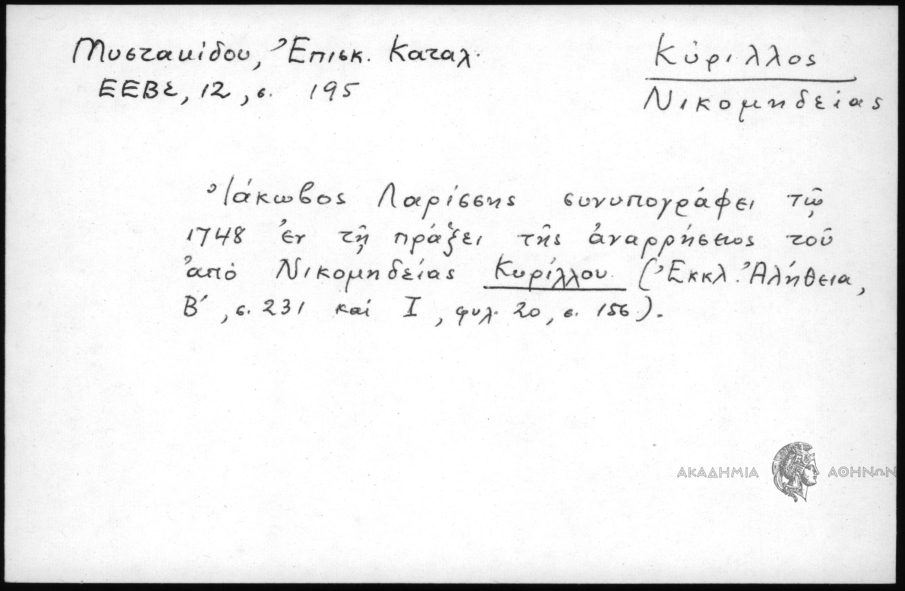 Μυστακίδου, Ἐπισκ. Καταλ.
ΕΕΒΣ, 12, σ. 195
Κύριλλος
Νικομηδείας
Ἰάκωβος Λαρίσσης συνυπογράφει τῷ
1748 ἐν τῇ πράξει τῆς ἀναρρήσεως τοῦ
ἀπὸ Νικομηδείας Κυρίλλου (Ἐκκλ. Ἀλήθεια,
Β', σ. 231 καί Ι, φυλ. 20, σ. 156).
ΑΚΑΔΗΜΙΑ ΑΘΗΝΩΝ